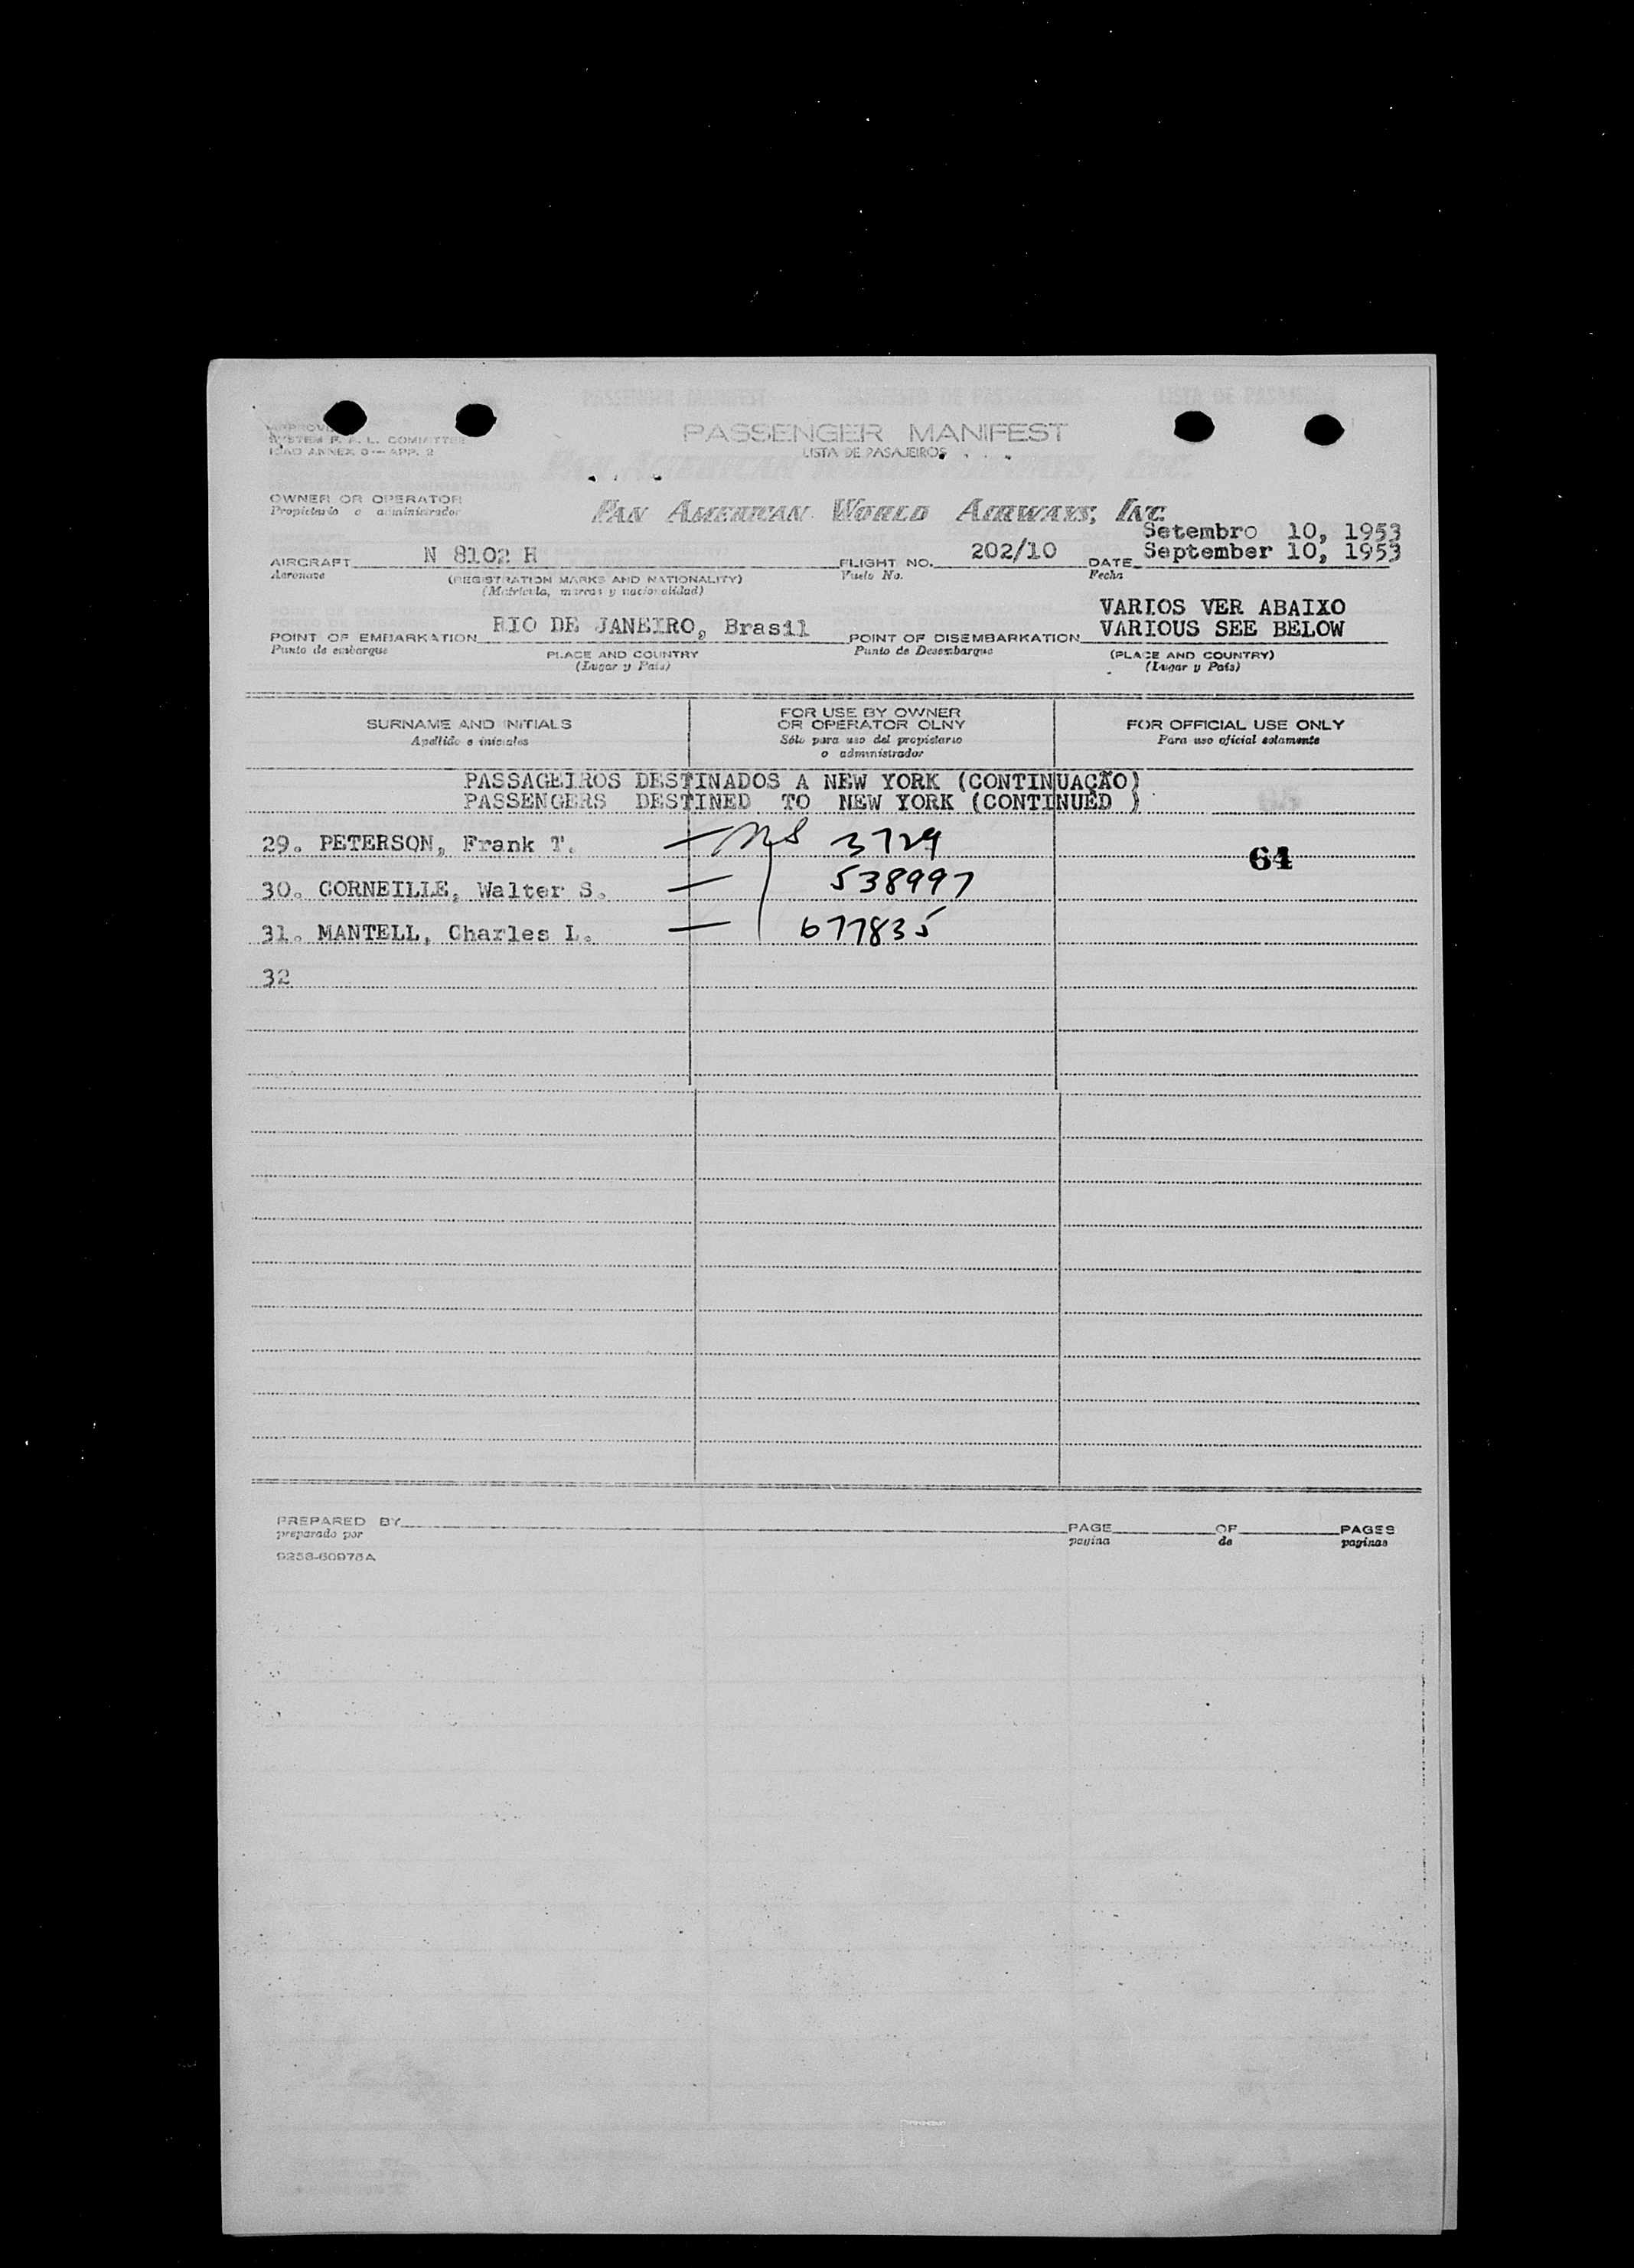 PASSENGER MANIFEST
LISTA DE PASAJEROS
SYSTEM F. A. L. COMMITTEE
ICAO ANNEX 9 — APP. 2
OWNER OR OPERATOR
Propietario o administrador
PAN AMERICAN WORLD AIRWAYS, INC.
Setembro 10, 1953
AIRCRAFT N 8102 H FLIGHT NO. 202/10 DATE September 10, 1953
Aeronave (REGISTRATION MARKS AND NATIONALITY) Vuelo No. Fecha
(Matrícula, marcas y nacionalidad)
VARIOS VER ABAIXO
POINT OF EMBARKATION RIO DE JANEIRO, Brasil POINT OF DISEMBARKATION VARIOUS SEE BELOW
Punto de embarque PLACE AND COUNTRY Punto de Desembarque (PLACE AND COUNTRY)
(Lugar y País) (Lugar y País)
SURNAME AND INITIALS FOR USE BY OWNER OR OPERATOR OLNY FOR OFFICIAL USE ONLY
Apellido e iniciales Sólo para uso del propietario o administrador Para uso oficial solamente
PASSAGEIROS DESTINADOS A NEW YORK (CONTINUAÇÃO)
PASSENGERS DESTINED TO NEW YORK (CONTINUED )
29. PETERSON, Frank T. 3729 64
30. CORNEILLE, Walter S. 538997
31. MANTELL, Charles L. 677835
32
PREPARED BY PAGE OF PAGES
preparado por pagina de paginas
9258-60975A